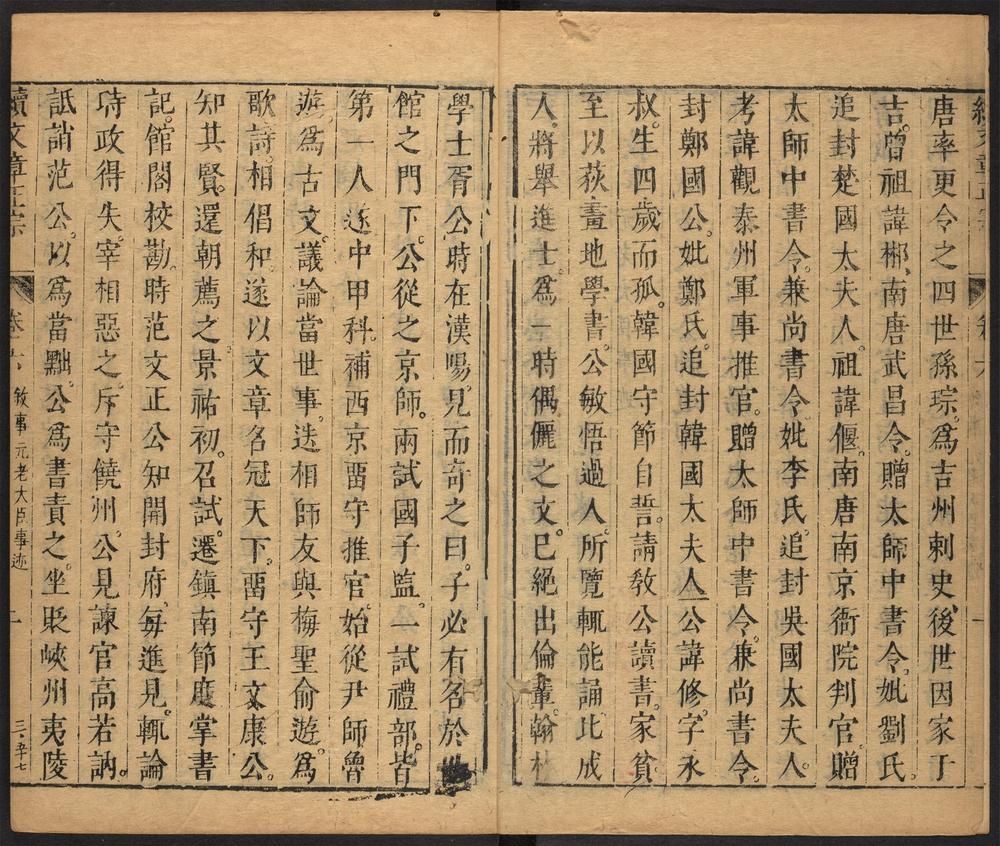 續文章正宗
卷
唐率更令之四世孫琮。爲吉州刺史。後世因家于
吉。曾祖諱郴、南唐武昌令。贈太師中書令。妣劉氏。
追封楚國太夫人。祖諱偃。南唐南京衙院判官。贈
太師中書令。兼尚書令。妣李氏。追封吳國太夫人。
考諱觀泰州軍事推官。贈太師中書令。兼尚書令。
封鄭國公。妣鄭氏。追封韓國太夫人。公諱修。字永
叔。生四歲而孤。韓國守節自誓。請教公讀書。家貧。
至以荻畫地學書。公敏悟過人。所覽輒能誦。比成
人。將舉進士。爲一時偶儷之文。已絕出倫輩。翰林
學士胥公。時在漢陽。見而奇之曰。子必有名於世
館之門下。公從之京師。兩試國子監。一試禮部。皆
第一人。遂中甲科。補西京留守推官。始從尹師魯
遊。爲古文。議論當世事。迭相師友。與梅聖俞遊。爲
歌詩。相倡和。遂以文章名冠天下。留守王文康公。
知其賢。還朝薦之。景祐初。召試。遷鎮南節度掌書
記。館閣校勘。時范文正公知開封府。每進見。輒論
時政得失。宰相惡之。斥守饒州。公見諫官高若訥。
詆誚范公。以爲當黜。公爲書責之。坐貶峽州夷陵
續文章正宗 卷 敘事元老大臣事迹 一 三・五十七